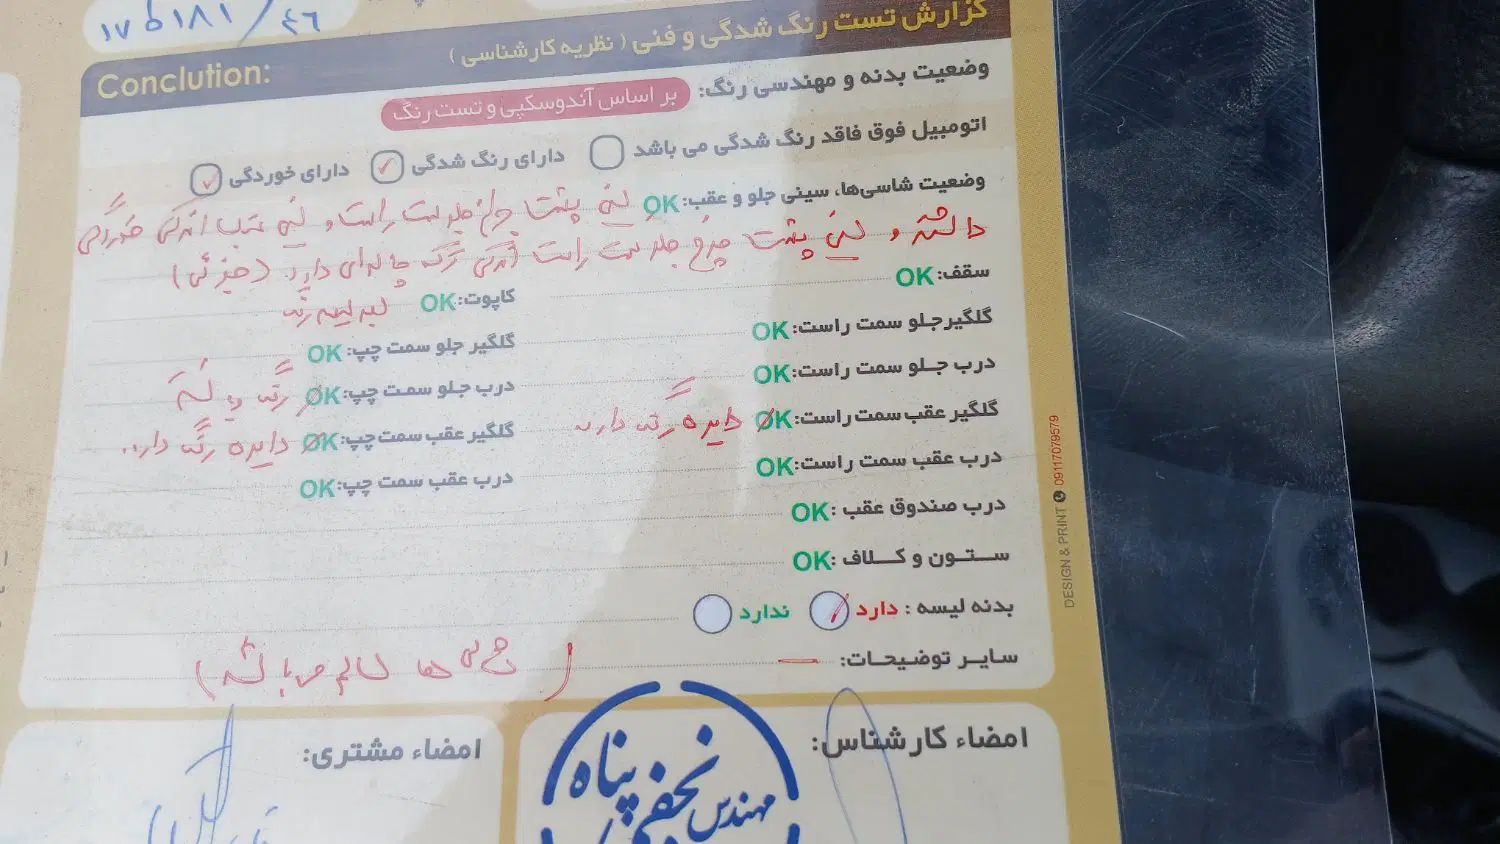 ۱۷ ط ۱۸۱ / ۴۶
گزارش تست رنگ شدگی و فنی ( نظریه کارشناسی )
Conclution:
وضعیت بدنه و مهندسی رنگ: بر اساس آندوسکپی و تست رنگ
اتومبیل فوق فاقد رنگ شدگی می باشد دارای رنگ شدگی ✓ دارای خوردگی ✓
وضعیت شاسی‌ها، سینی جلو و عقب: OK سینی پشت چراغ جلو سمت راست و سینی عقب اندکی خوردگی
داشته و سینی پشت چراغ جلو سمت راست اندکی رنگ دارد (جزئی)
سقف: OK
کاپوت: OK لبه لیسه رنگ
گلگیر جلو سمت راست: OK
گلگیر جلو سمت چپ: OK
درب جلو سمت راست: OK
درب جلو سمت چپ: OK رنگ
گلگیر عقب سمت راست: OK دایره رنگ دارد.
گلگیر عقب سمت چپ: OK دایره رنگ دارد.
درب عقب سمت راست: OK
درب عقب سمت چپ: OK
درب صندوق عقب : OK
ستون و کلاف : OK
بدنه لیسه : دارد ندارد
سایر توضیحات: — ( شاسی ها سالم میباشد )
امضاء کارشناس:
امضاء مشتری:
مهندس نجفی پناه
DESIGN & PRINT 09117079579